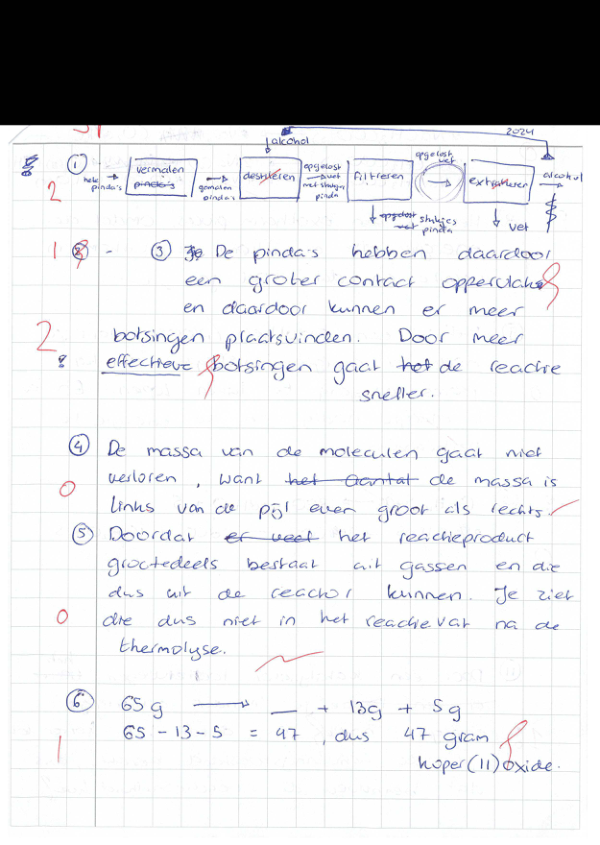 2024
alcohol
① hele pinda's → vermalen pinda's → gemalen pinda's → destilleren → opgelost vet met stukjes pinda → filtreren → opgelost vet → extraheren → alcohol
2
opgelost stukjes met pinda
vet
1 ② - ③ Je De pinda's hebben daardoor
een groter contact oppervlakte
en daardoor kunnen er meer
2 botsingen plaatsvinden. Door meer
effectieve botsingen gaat het de reactie
sneller.
④ De massa van de moleculen gaat niet
verloren, want het aantal de massa is
0 links van de pijl even groot als rechts.
⑤ Doordat er veel het reactieproduct
grootedeels bestaat uit gassen en die
dus uit de reactor kunnen. Je ziet
0 die dus niet in het reactievat na de
thermolyse.
⑥ 65 g → __ + 13g + 5g
65 - 13 - 5 = 47, dus 47 gram
1 koper(II)oxide.